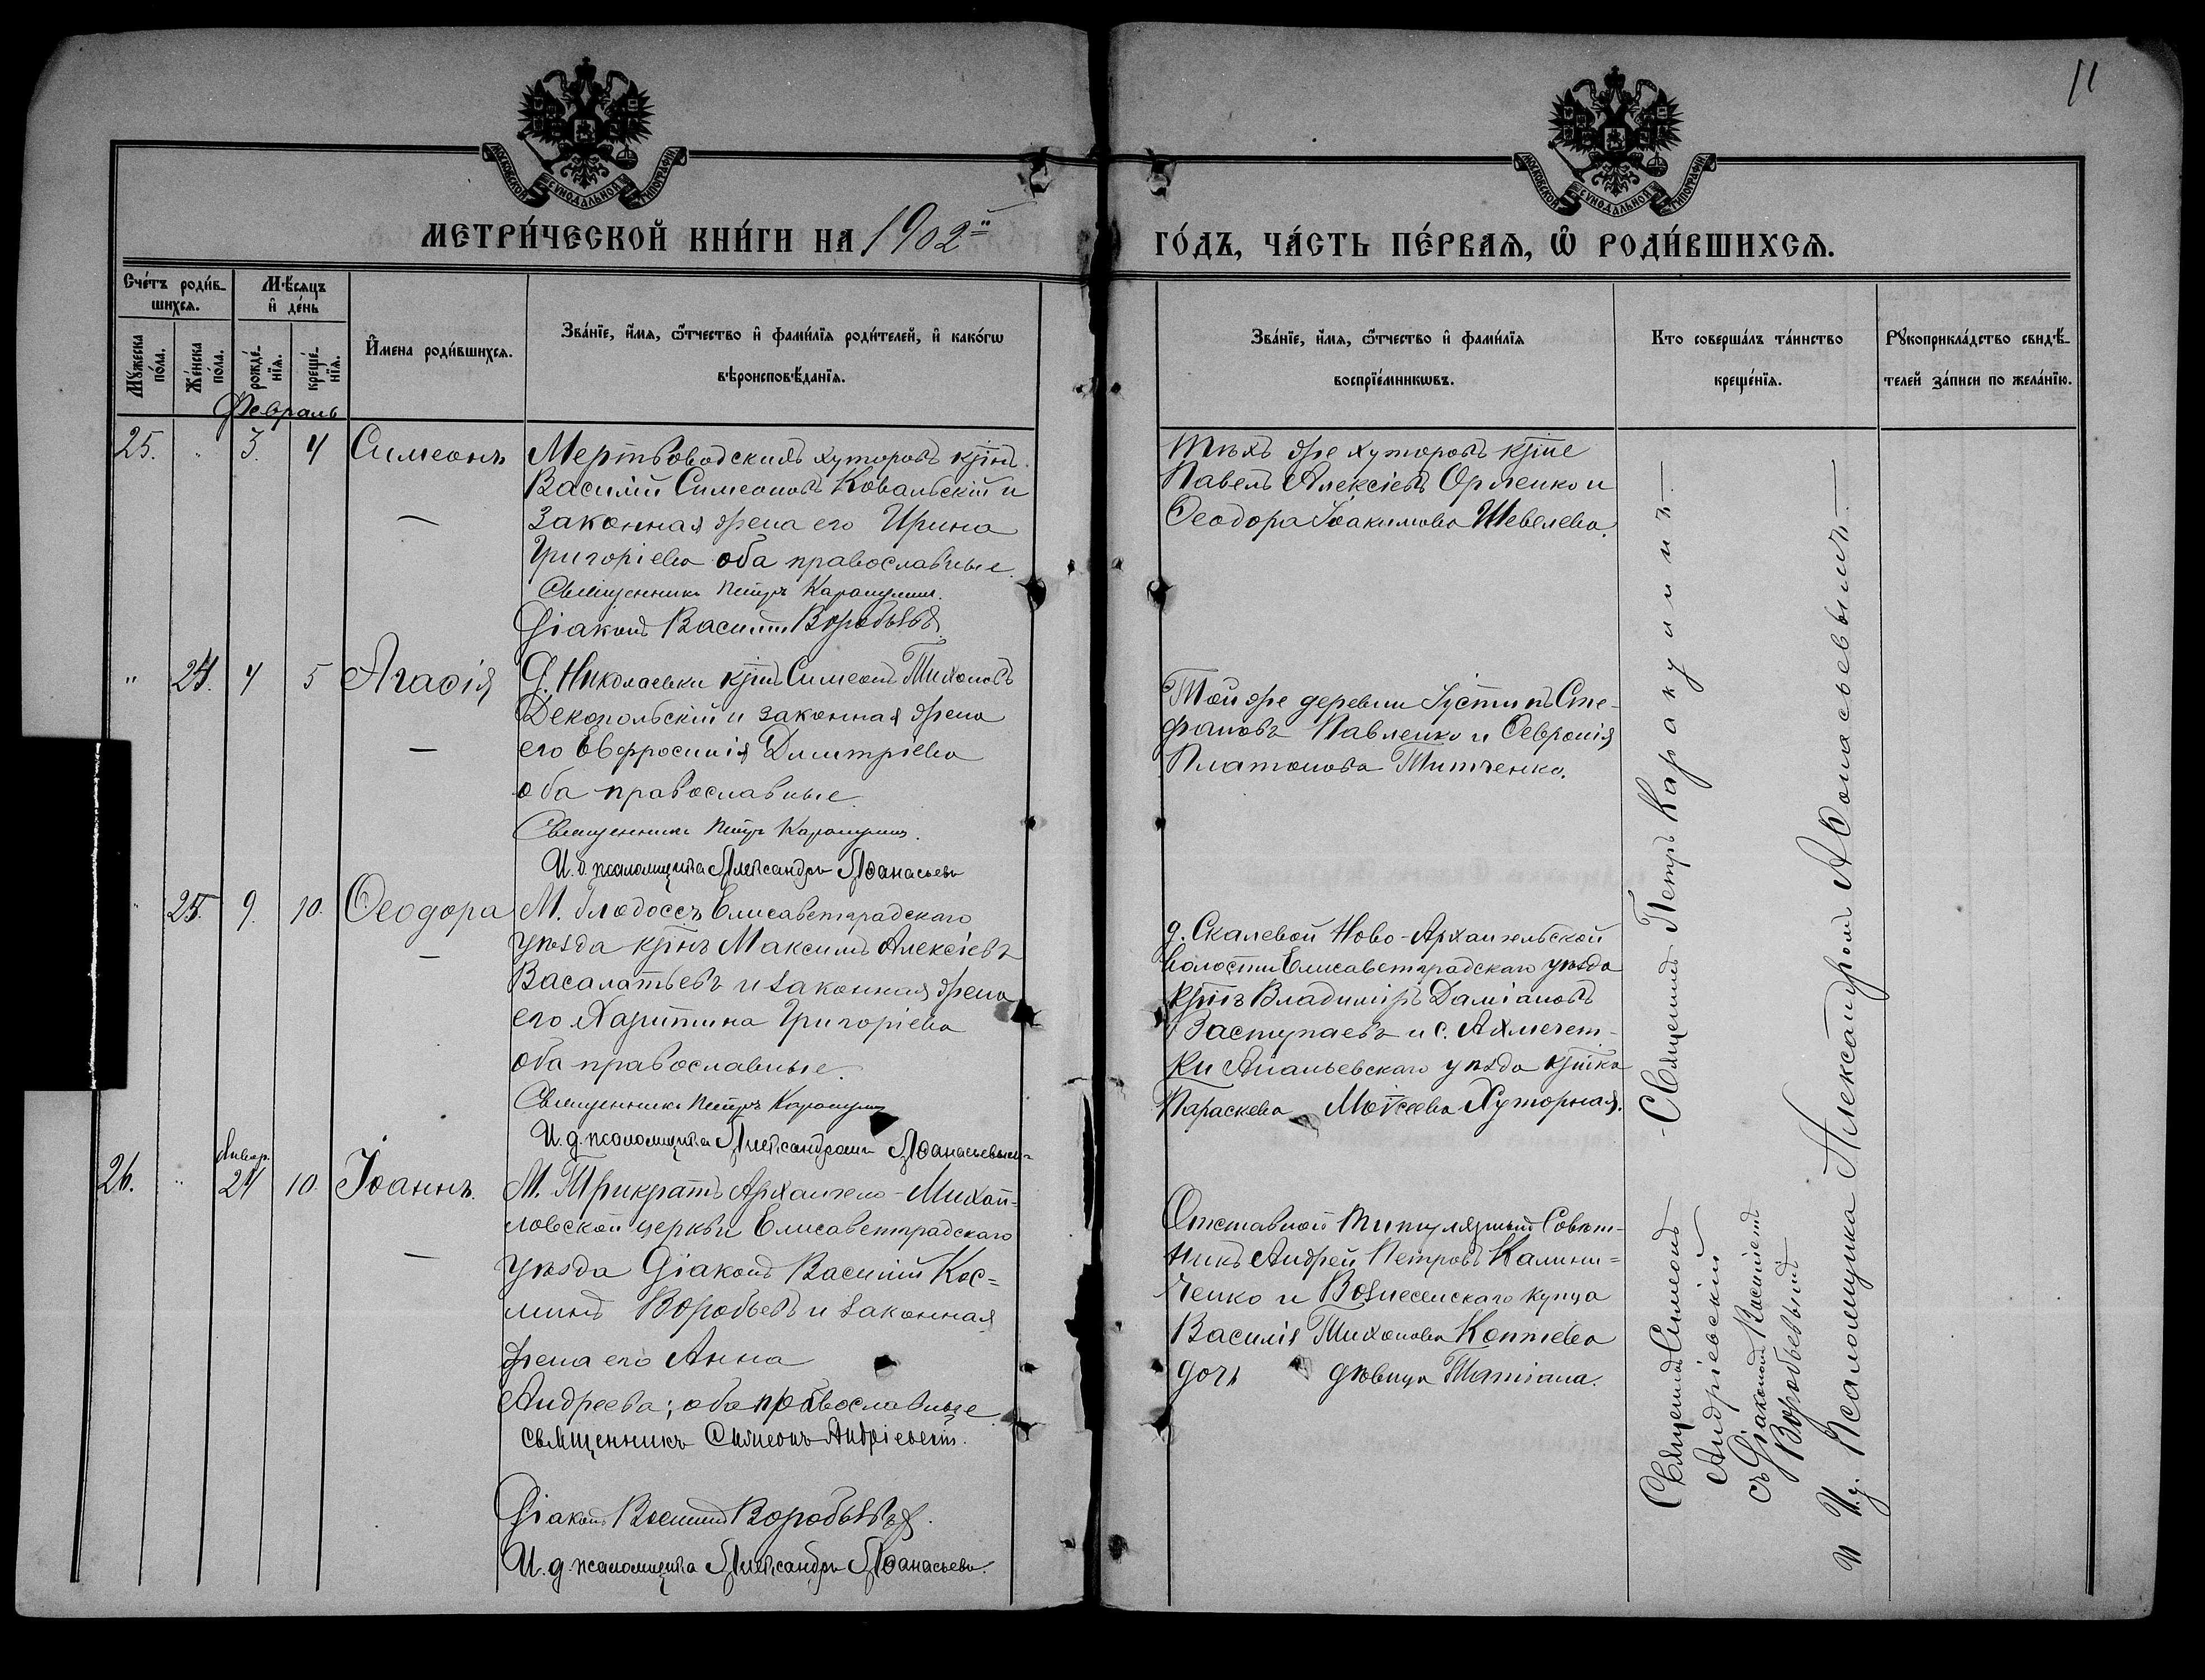 11
МОСКОВСКОЙ СѴНОДАЛЬНОЙ ТИПОГРАФІИ
МОСКОВСКОЙ СѴНОДАЛЬНОЙ ТИПОГРАФІИ
МЕТРИ́ЧЕСКОЙ КНИ́ГИ НА 1902й
ГО́ДЪ, ЧА́СТЬ ПЕ́РВАѦ, Ѡ РОДИ́ВШИХСѦ.
Сче́тъ роди́в-
шихсѧ.
Мѣ́сѧцъ
и де́нь
Мꙋ́жеска
по́ла.
Же́нска
по́ла.
рожде́-
нїѧ.
креще́-
нїѧ.
И҆мена роди́вшихсѧ.
Зва́нїе, и҆́мѧ, ѻ҆́тчество и҆ фами́лїѧ роди́телей, и҆ како́гѡ
вѣроисповѣ́данїѧ.
Зва́нїе, и҆́мѧ, ѻ҆́тчество и҆ фами́лїѧ
воспрїе́мникѡвъ.
Кто соверша́лъ та́инство
креще́нїѧ.
Рꙋкоприкла́дство свидѣ́-
телей за́писи по жела́нїю.
Февраль
25. " 3. 4 Симеонъ
Мертвоводскихъ хуторовъ кр̅інъ
Василій Симеоновъ Ковальскій и
законная жена его Ирина
Григоріева оба православные.
Священникъ Петръ Каракулинъ.
Діаконъ Василій Воробьевъ
Тѣхъ же хуторовъ кр̅іне
Павелъ Алексіевъ Орленко и
Ѳеодора Іоакимова Шевелева.
" 24. 4 5 Агаѳія
Д. Николаевки кр̅інъ Симеонъ Тихоновъ
Декопольскій и законная жена
его Евфросинія Димитріева
оба православные.
Священникъ Петръ Каракулинъ.
И. д. псаломщика Александръ Аѳанасьевъ
Той же деревни Іустинъ Сте-
фановъ Павленко и Февронія
Платонова Титченко.
" 25. 9. 10. Ѳеодора
М. Глодоссъ Елисаветградскаго
уѣзда кр̅інъ Максимъ Алексіевъ
Васалатьевъ и законная жена
его Харитина Григоріева
оба православные.
Священникъ Петръ Каракулинъ
И. д. псаломщика Александромъ Аѳанасьевымъ
д. Скалевой Ново-Архангельской
волости Елисаветградскаго уѣзда
кр̅інъ Владиміръ Даміановъ
Заступаевъ и с. Ахмечет-
ки Ананьевскаго уѣзда кр̅інка
Параскева Моѵсеева Хуторная.
Январ.
26. " 24 10. Іоаннъ.
М. Трикратъ Архангело-Михай-
ловской церкви Елисаветградскаго
уѣзда Діаконъ Василій Кос-
минъ Воробьевъ и законная
жена его Анна
Андреева; оба православные.
Священникъ Симеонъ Андріевскій.
Діаконъ Василій Воробьевъ.
И. д. псаломщика Александръ Аѳанасьевъ.
Отставной Титулярный Совѣт-
никъ Андрей Петровъ Калини-
ченко и Вознесенскаго купца
Василія Тихонова Коптева
дочь дѣвица Татіана.
Священникъ Петръ Каракулинъ
Священникъ Симеонъ
Андріевскій
съ Діакономъ Василіемъ
Воробьевымъ
и И. д. Псаломщика Александромъ Аѳанасьевымъ